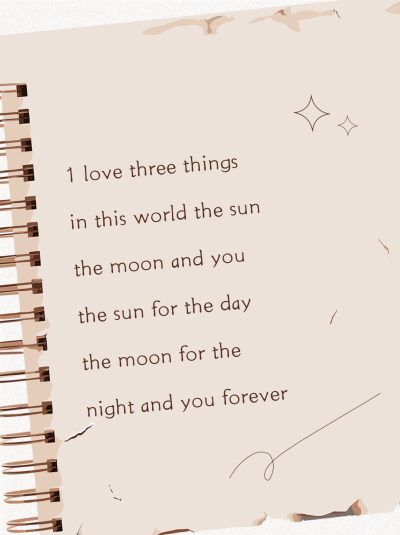 1 love three things
in this world the sun
the moon and you
the sun for the day
the moon for the
night and you forever